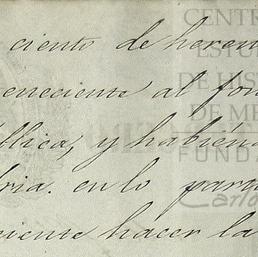 ciento de heren
eneciente al fon
blica, y habién
ria. en lo para
niente hacer la
CENTR
ESTU
DE HIS
DE ME
FUNDA
Carlo